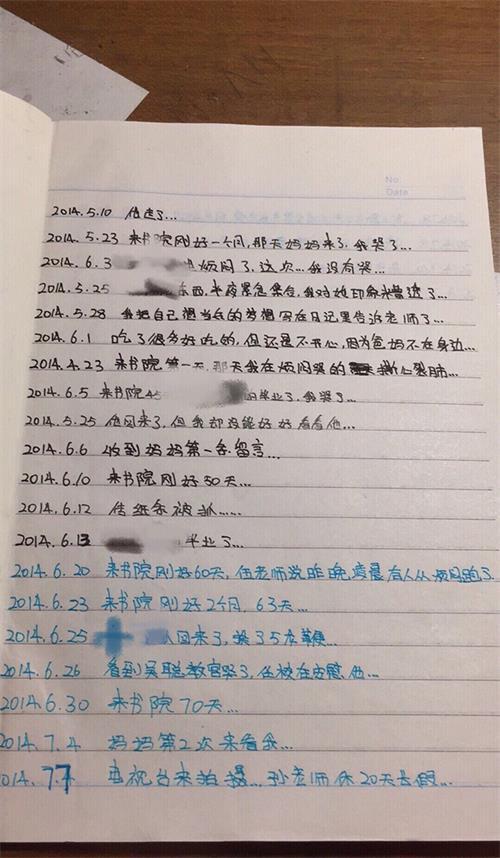 No.
Date
2014.5.10 他走了...
2014.5.23 来书院刚好一个月,那天妈妈来了.我哭了...
2014.6.3 烦闷了,这次...我没有哭...
2014.5.25 东西,半夜紧急集合,我对她印象糟透了...
2014.5.28 我把自己想当兵的梦想写在日记里告诉老师了...
2014.6.1 吃了很多好吃的,但还是不开心,因为爸妈不在身边...
2014.4.23 来书院第一天,那天我在烦闷哭的撕心裂肺...
2014.6.5 来书院45 毕业了,我哭了...
2014.5.25 他回来了,但我却没能好好看看他...
2014.6.6 收到妈妈第一条留言...
2014.6.10 来书院刚好50天...
2014.6.12 传纸条被抓......
2014.6.13 毕业了...
2014.6.20 来书院刚好60天,伍老师说昨晚凌晨有人从烦闷跑了...
2014.6.23 来书院刚好2个月,63天...
2014.6.25 人回来了,挨了5龙鞭...
2014.6.26 看到吴聪教官哭了,伍被在安慰他...
2014.6.30 来书院70天...
2014.7.4 妈妈第2次来看我...
2014.7.7 电视台来拍摄...孙老师休20天长假...